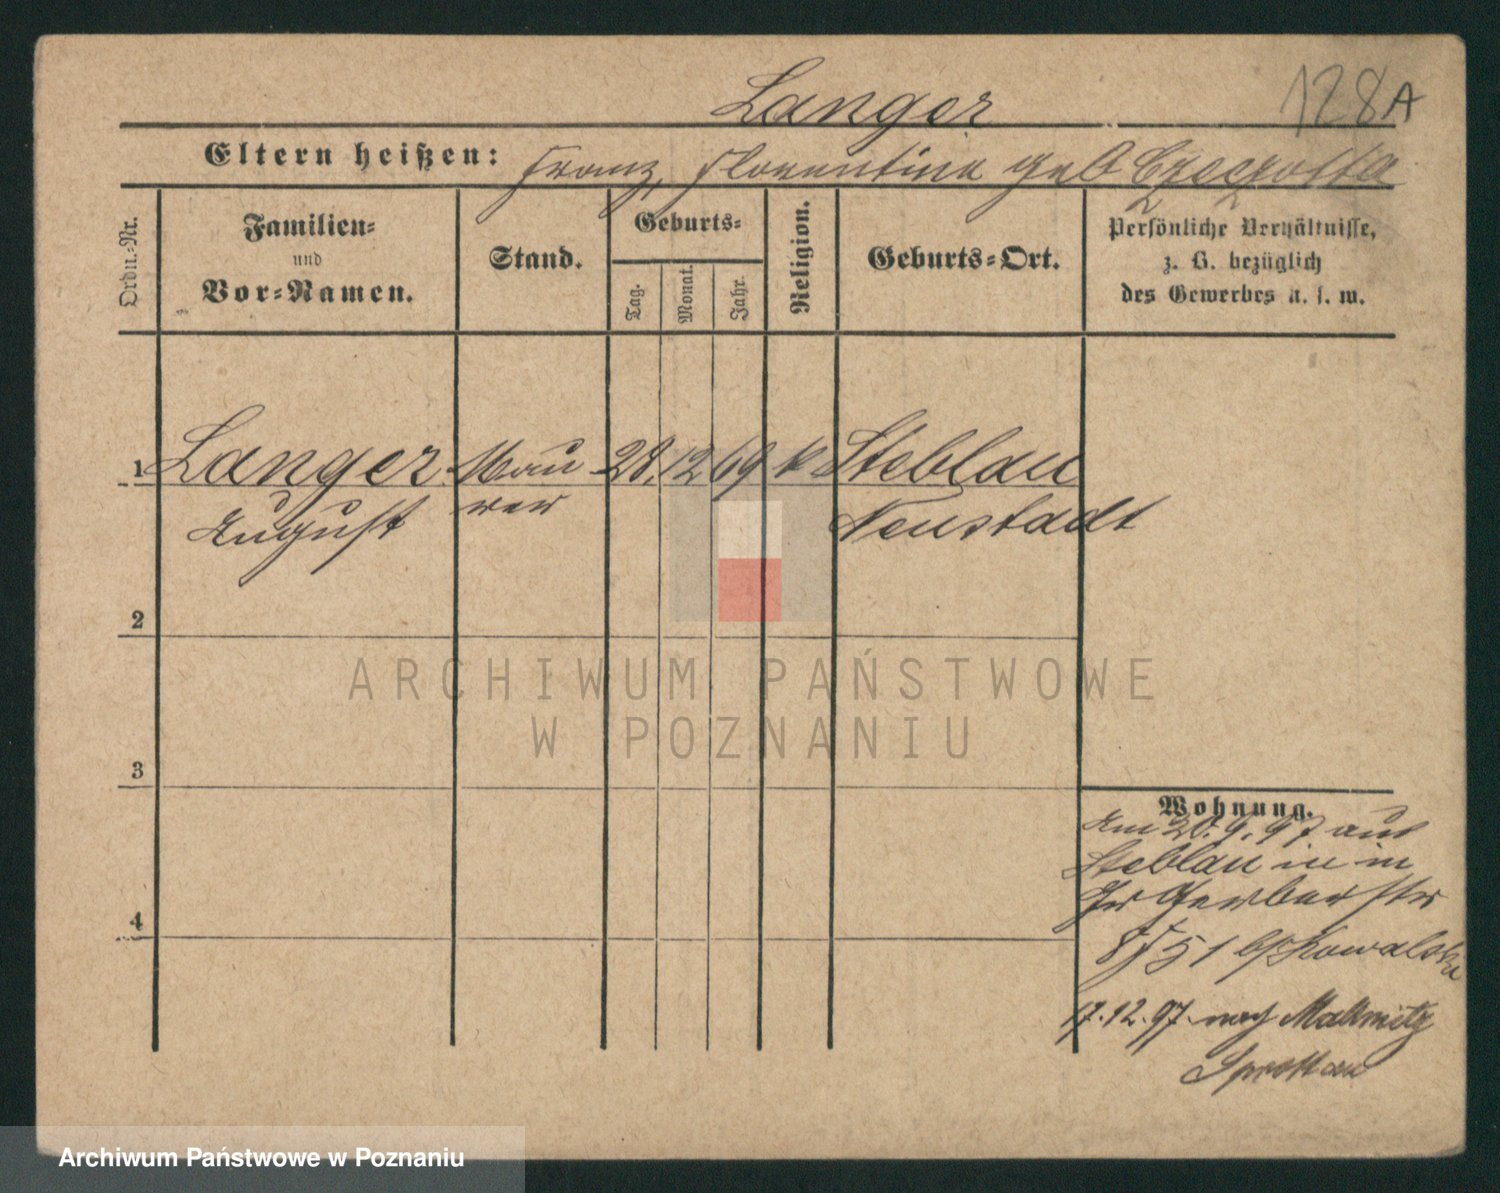 Langer
128A
Eltern heißen: Franz, Florentine geb Czeczotta
Ordn.-Nr.
Familien=
und
Vor=Namen.
Stand.
Geburts=
Tag.
Monat.
Jahr.
Religion.
Geburts=Ort.
Persönliche Verhältnisse,
z. B. bezüglich
des Gewerbes u. s. w.
1 Langer Mau 28. 12 69 k Steblau
August rer Neustadt
2
3
4
ARCHIWUM PAŃSTWOWE
W POZNANIU
Wohnung.
Am 20. 9. 97 aus
Steblau in
Gr Gerberstr
51 b/Kowalska
17.12.97 nach Mallmitz
Sprottau
Archiwum Państwowe w Poznaniu